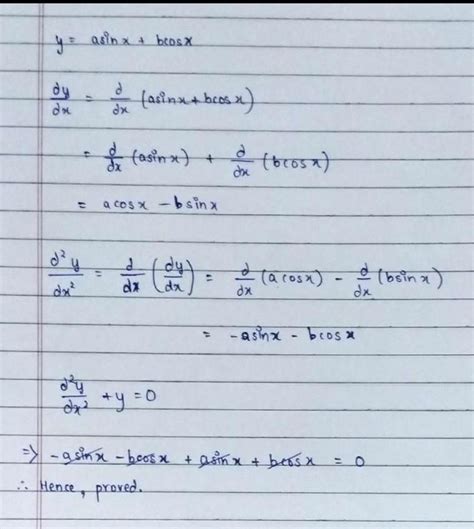 y = asinx + bcosx
dy/dx = d/dx (asinx + bcosx)
= d/dx (asinx) + d/dx (bcosx)
= acosx - bsinx
d²y/dx² = d/dx (dy/dx) = d/dx (acosx) - d/dx (bsinx)
= -asinx - bcosx
d²y/dx² + y = 0
=> -asinx - bcosx + asinx + bcosx = 0
∴ Hence, proved.